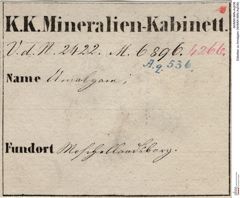 K.K. Mineralien-Kabinett.
V. d. N. 2422. M. 6896. 4266.
A.q. 536.
Name Amalgam;
Fundort Moschellandsberg.